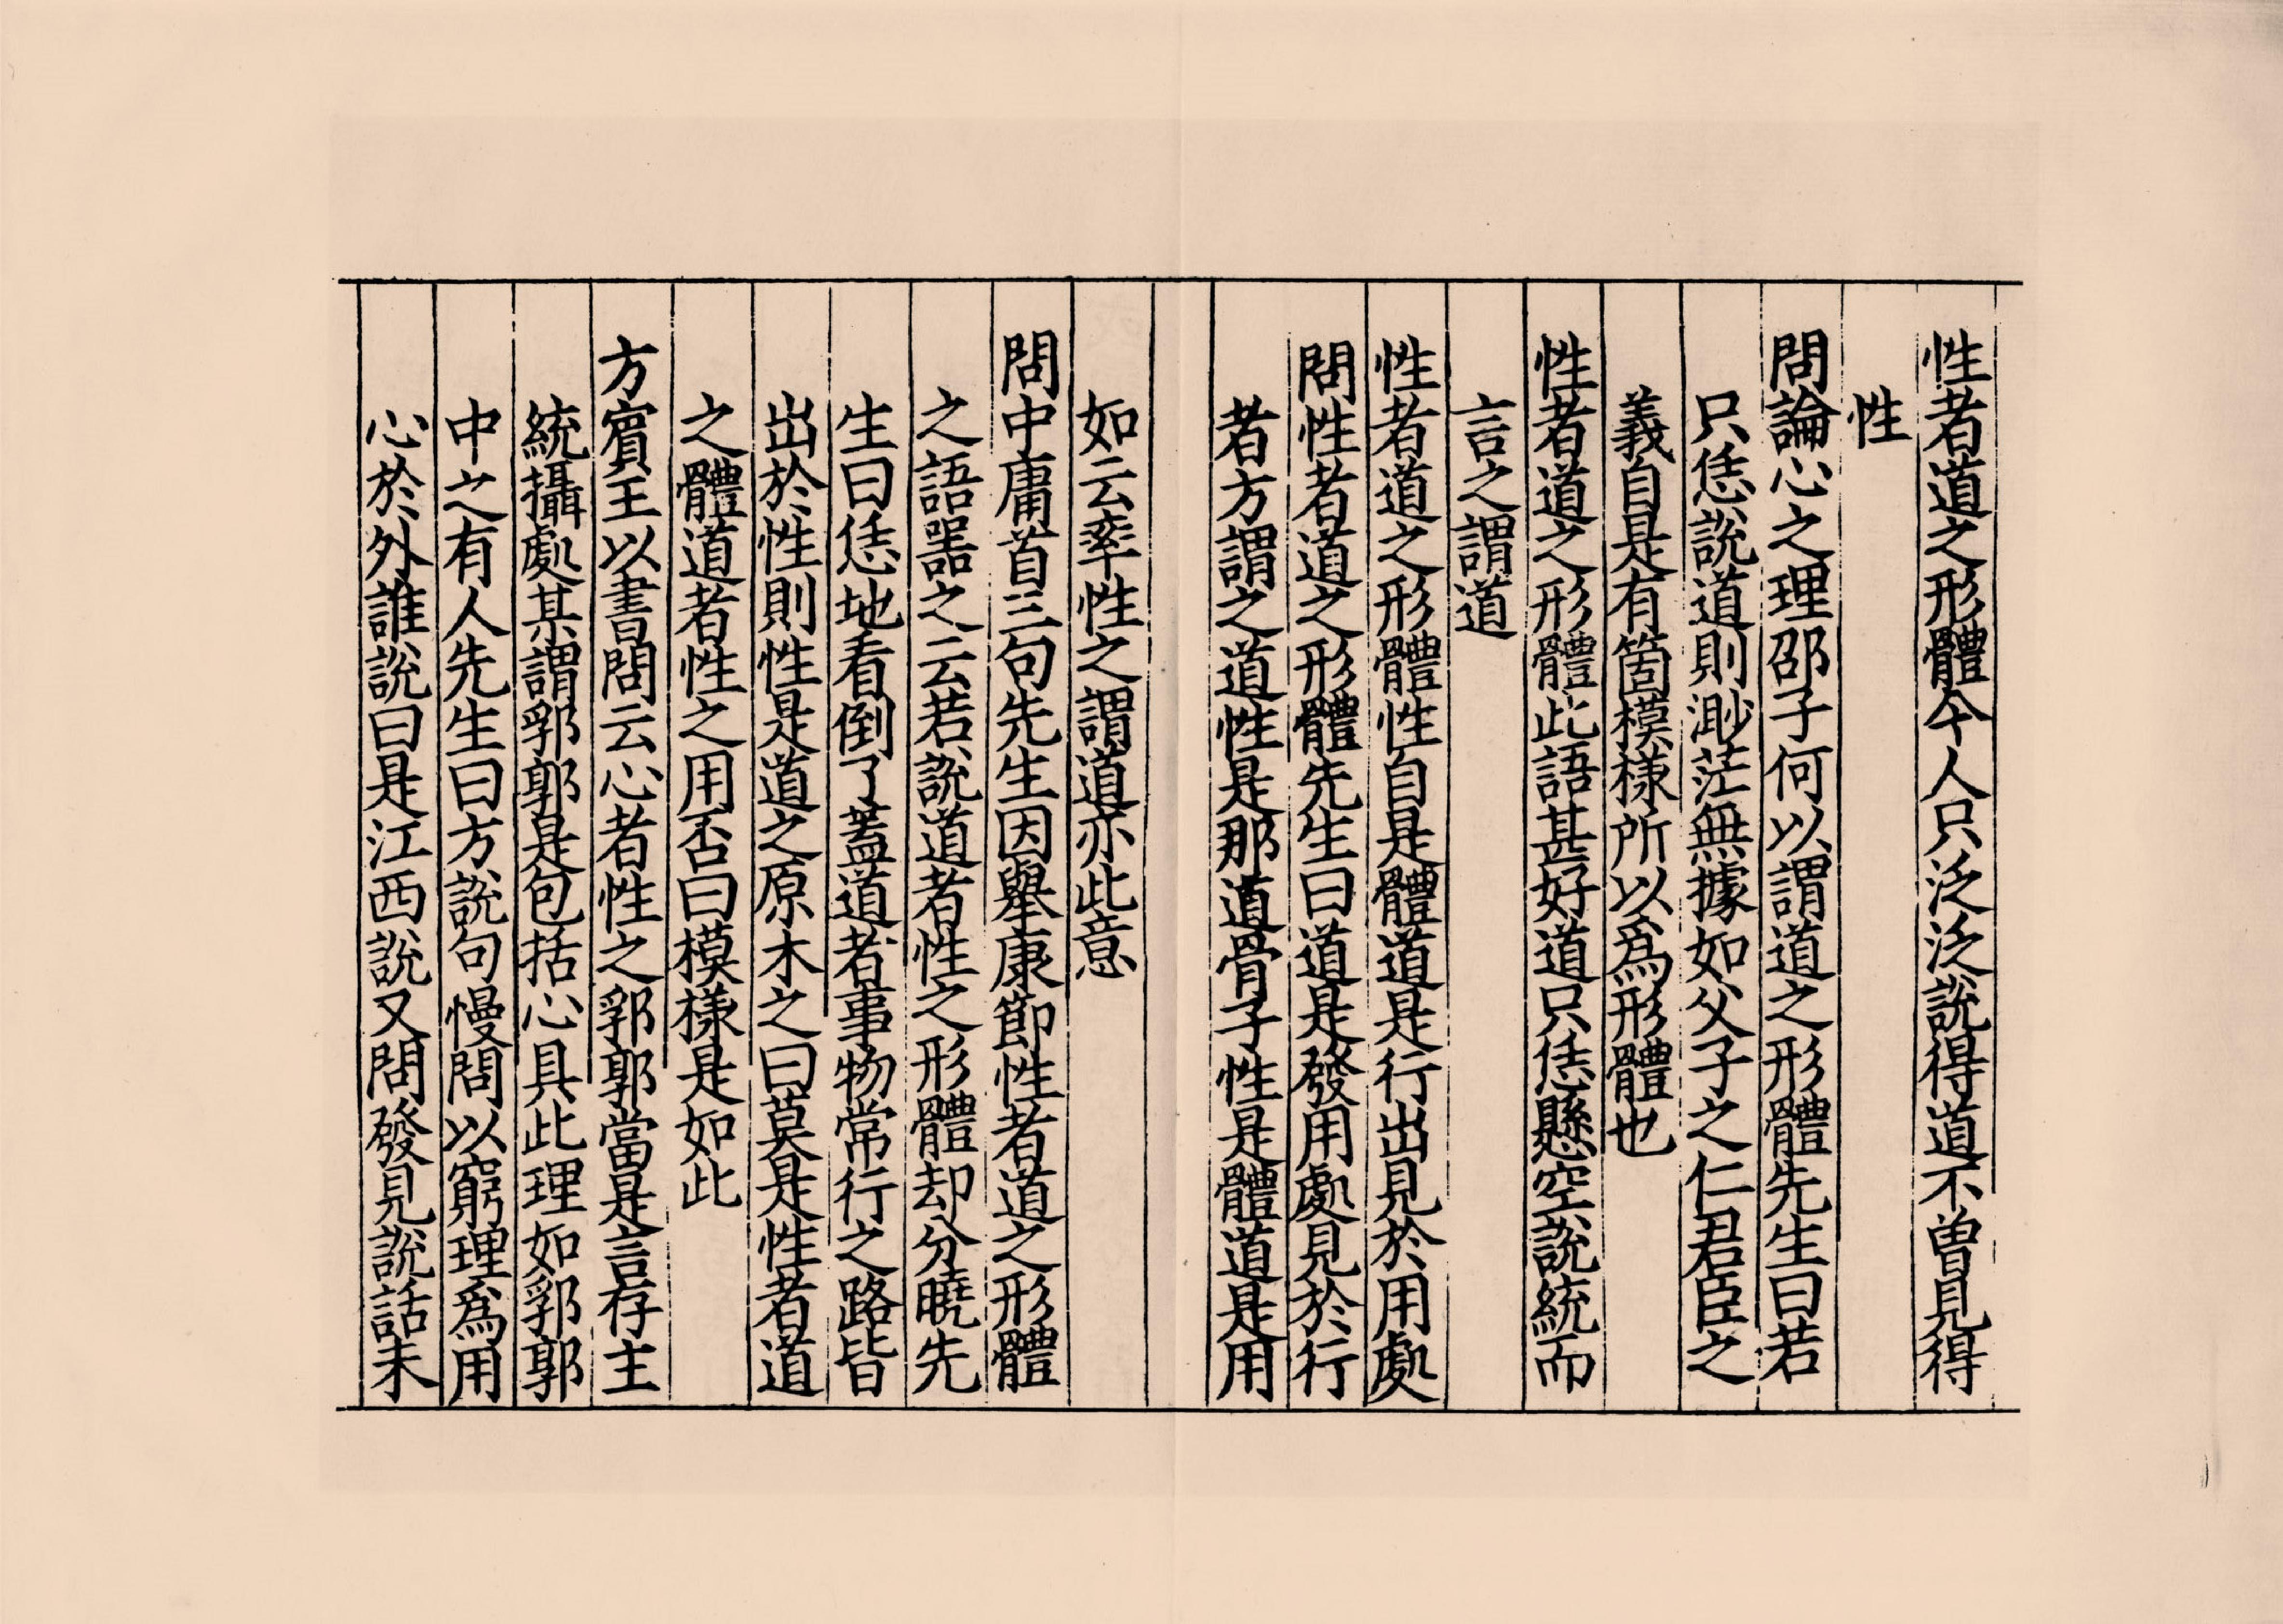 性者道之形體今人只泛泛說得道不曾見得
性
問論心之理邵子何以謂道之形體先生曰若
只恁說道則渺茫無據如父子之仁君臣之
義自是有箇模樣所以爲形體也
性者道之形體此語甚好道只恁懸空說統而
言之謂道
性者道之形體性自是體道是行出見於用處
問性者道之形體先生曰道是發用處見於行
者方謂之道性是那道骨子性是體道是用
如云率性之謂道亦此意
問中庸首三句先生因舉康節性者道之形體
之語器之云若說道者性之形體却分曉先
生曰恁地看倒了蓋道者事物常行之路皆
出於性則性是道之原木之曰莫是性者道
之體道者性之用否曰模樣是如此
方賓王以書問云心者性之郛郭當是言存主
統攝處某謂郛郭是包括心具此理如郛郭
中之有人先生曰方說句慢問以窮理爲用
心於外誰說曰是江西說又問發見說話未